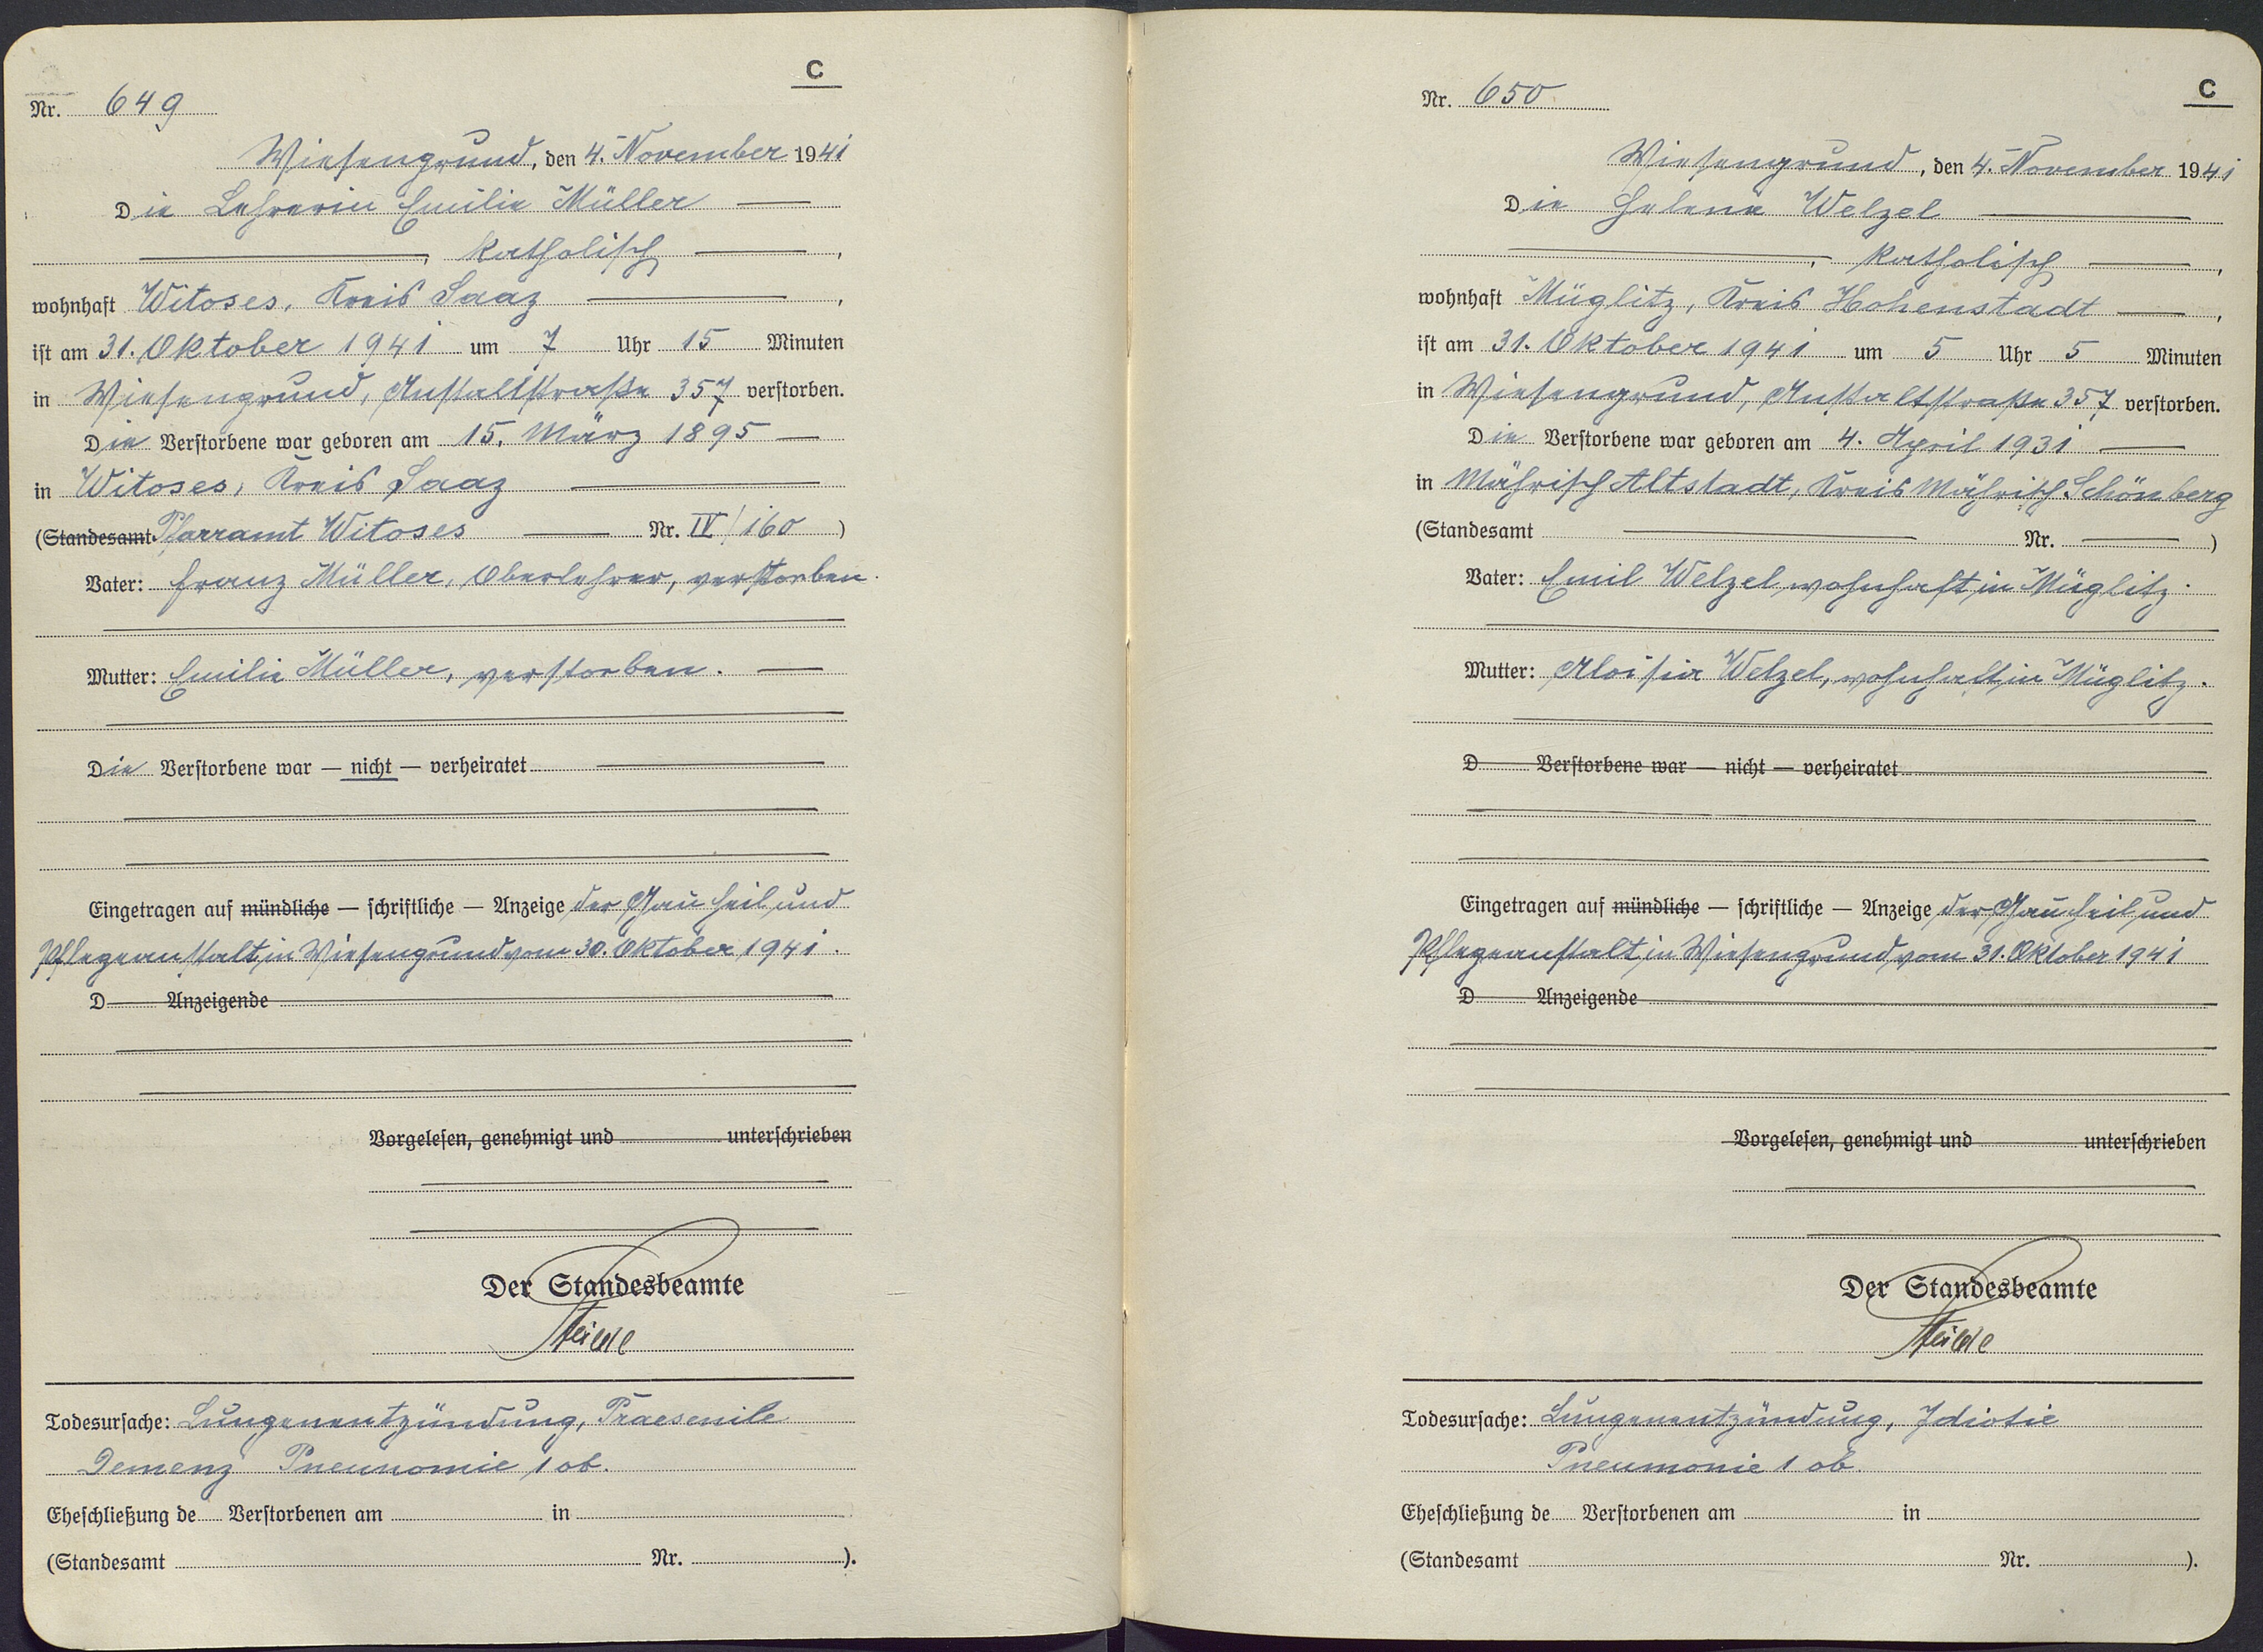 C
Nr. 649
Wiesengrund, den 4. November 1941
Die Lehrerin Emilie Müller
, katholisch ,
wohnhaft Witoses, Kreis Saaz ,
ist am 31. Oktober 1941 um 7 Uhr 15 Minuten
in Wiesengrund, Anstaltstraße 357 verstorben.
Die Verstorbene war geboren am 15. März 1895
in Witoses, Kreis Saaz
(Standesamt Pfarramt Witoses Nr. IV/160 )
Vater: Franz Müller, Oberlehrer, verstorben.
Mutter: Emilie Müller, verstorben.
Die Verstorbene war — nicht — verheiratet
Eingetragen auf mündliche — schriftliche — Anzeige der Gau Heil und
Pflegeanstalt in Wiesengrund vom 30. Oktober 1941.
D Anzeigende
Vorgelesen, genehmigt und unterschrieben
Der Standesbeamte
Todesursache: Lungenentzündung, Praesenile
Demenz Pneunomie 1 ob.
Eheschließung de Verstorbenen am in
(Standesamt Nr. ).
C
Nr. 650
Wiesengrund, den 4. November 1941
Die Helene Welzel
, katholisch ,
wohnhaft Müglitz, Kreis Hohenstadt ,
ist am 31. Oktober 1941 um 5 Uhr 5 Minuten
in Wiesengrund, Anstaltstraße 357 verstorben.
Die Verstorbene war geboren am 4. April 1931
in Mährisch Altstadt, Kreis Mährisch Schönberg
(Standesamt Nr. )
Vater: Emil Welzel, wohnhaft in Müglitz.
Mutter: Aloisia Welzel, wohnhaft in Müglitz.
D Verstorbene war — nicht — verheiratet
Eingetragen auf mündliche — schriftliche — Anzeige der Gau Heil und
Pflegeanstalt in Wiesengrund vom 31. Oktober 1941
D Anzeigende
Vorgelesen, genehmigt und unterschrieben
Der Standesbeamte
Todesursache: Lungenentzündung, Idiotie
Pneumonie 1 ob.
Eheschließung de Verstorbenen am in
(Standesamt Nr. ).